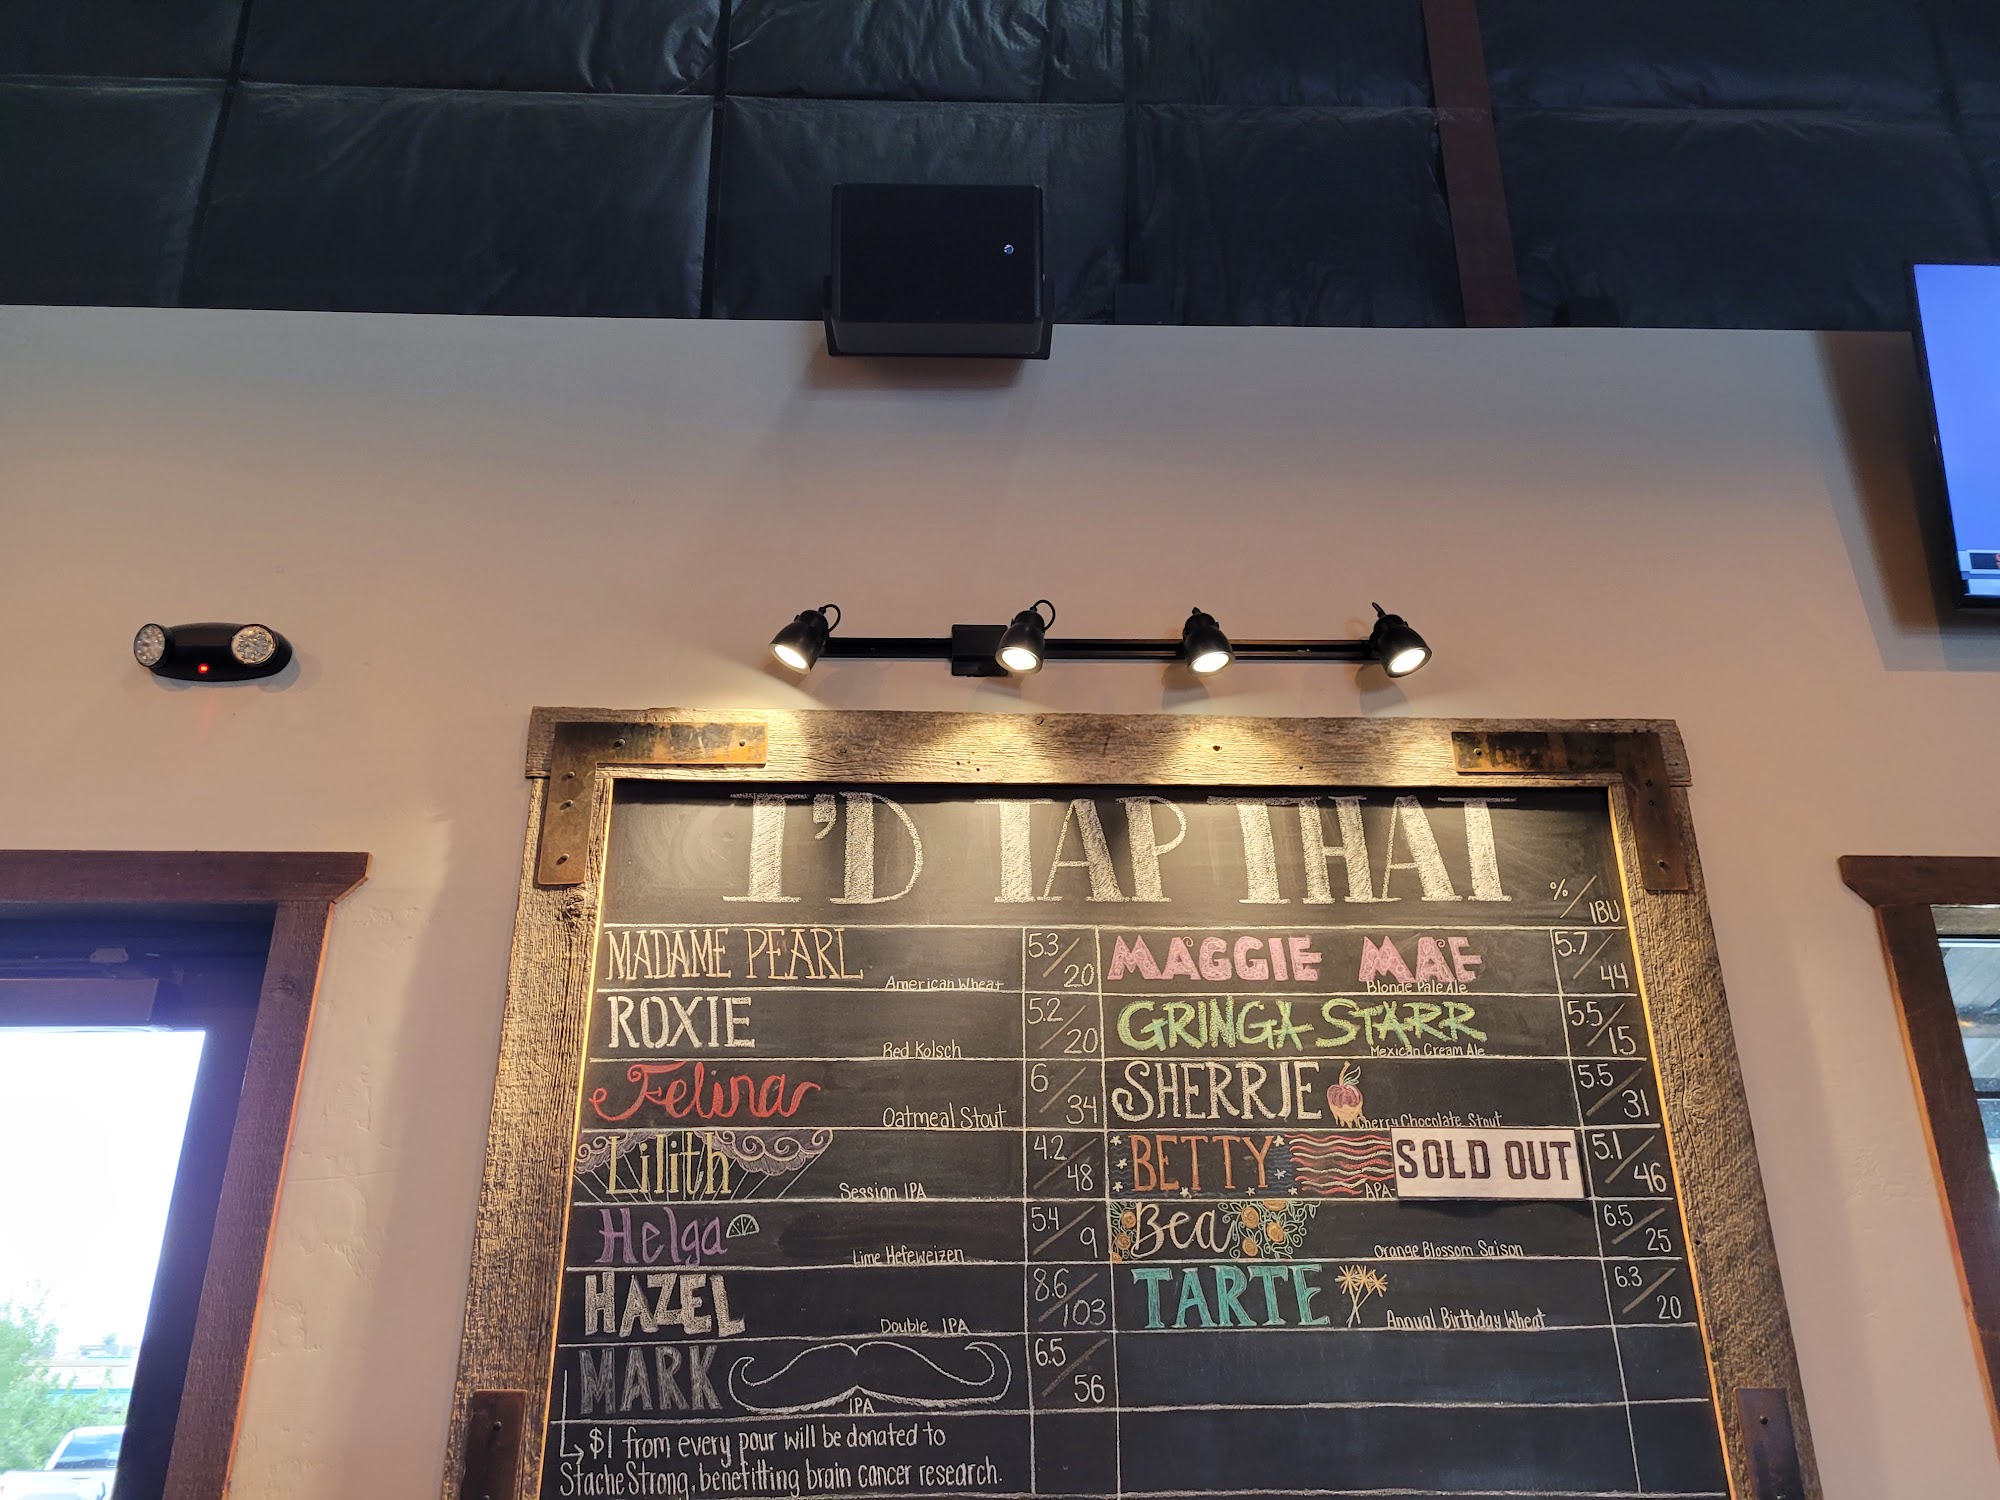 I'D TAP THAT
%/IBU
MADAME PEARL American Wheat 5.3/20
ROXIE Red Kolsch 5.2/20
Felina Oatmeal Stout 6/34
Lilith Session IPA 4.2/48
Helga Lime Hefeweizen 5.4/9
HAZEL Double IPA 8.6/103
MARK IPA 6.5/56
$1 from every pour will be donated to
StacheStrong, benefitting brain cancer research.
MAGGIE MAE Blonde Pale Ale 5.7/44
GRINGA STARR Mexican Cream Ale 5.5/15
SHERRIE Cherry Chocolate Stout 5.5/31
BETTY APA SOLD OUT 5.1/46
Bea Orange Blossom Saison 6.5/25
TARTE Annual Birthday Wheat 6.3/20